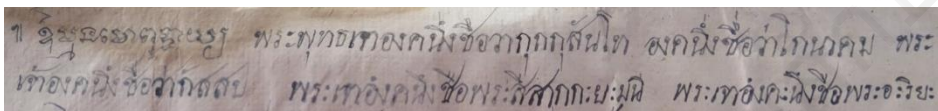 พระพุทธเทาองคนึ่งชือวากุกกุสันโท องคนึ่งชื่อว่าโกนาคม พระ
เท้าองคนึ่งช้อว่ากัสสป พระเทาองคนึงชือพระสีสากกะยะมุนี พระเทาองคะนึงชือพระอะริยะ